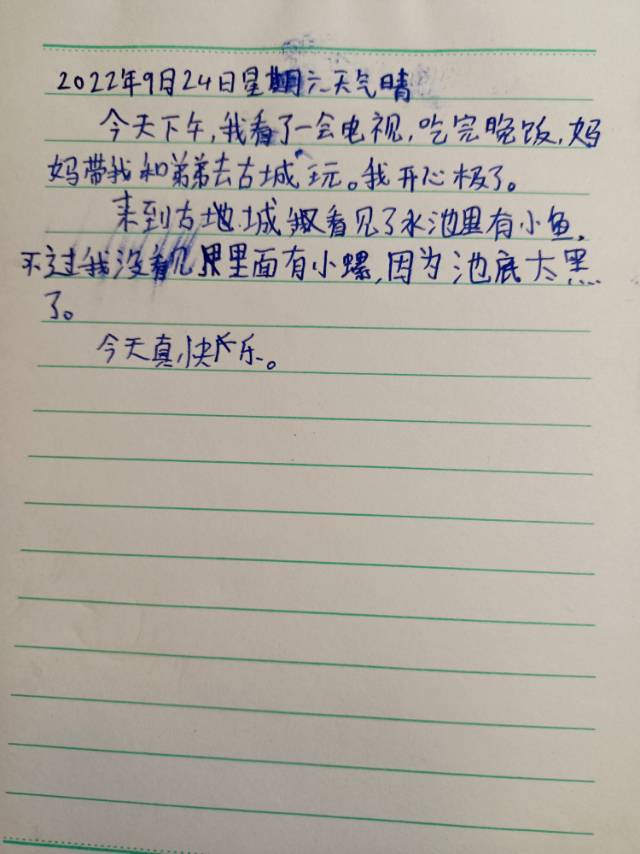 2022年9月24日星期六天气晴
今天下午,我看了一会电视,吃完晚饭,妈
妈带我和弟弟去古城玩。我开心极了。
来到古地城 看见了水池里有小鱼,
不过我没看见 里面有小螺,因为池底太黑
了。
今天真快乐。